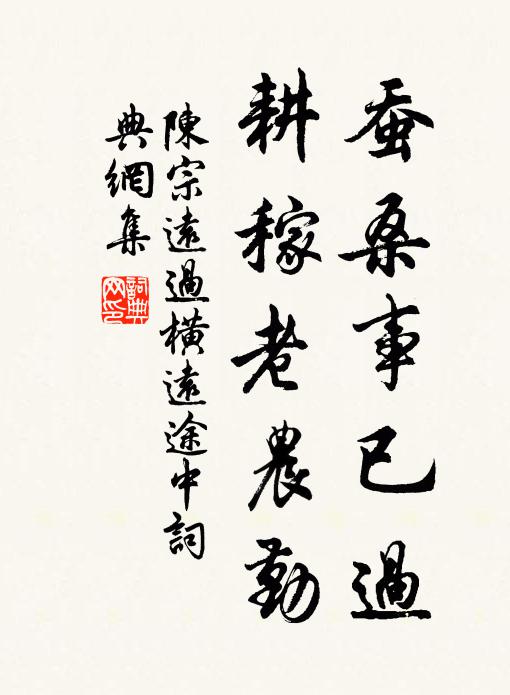 蚕桑事已過
耕稼老農勤
陳宗遠過橫遠途中詞
典網集
詞典
网印